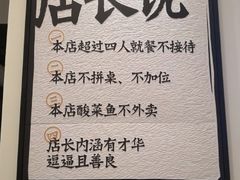 店长说
一 本店超过四人就餐不接待
二 本店不拼桌、不加位
三 本店酸菜鱼不外卖
四 店长内涵有才华
逗逼且善良